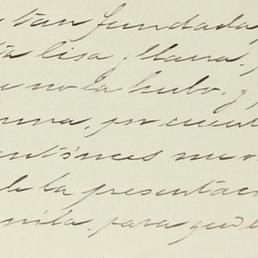 tan fundada
lisa y llana,
no la hubo, y
por cuent
entónces me
de la presentac
para que